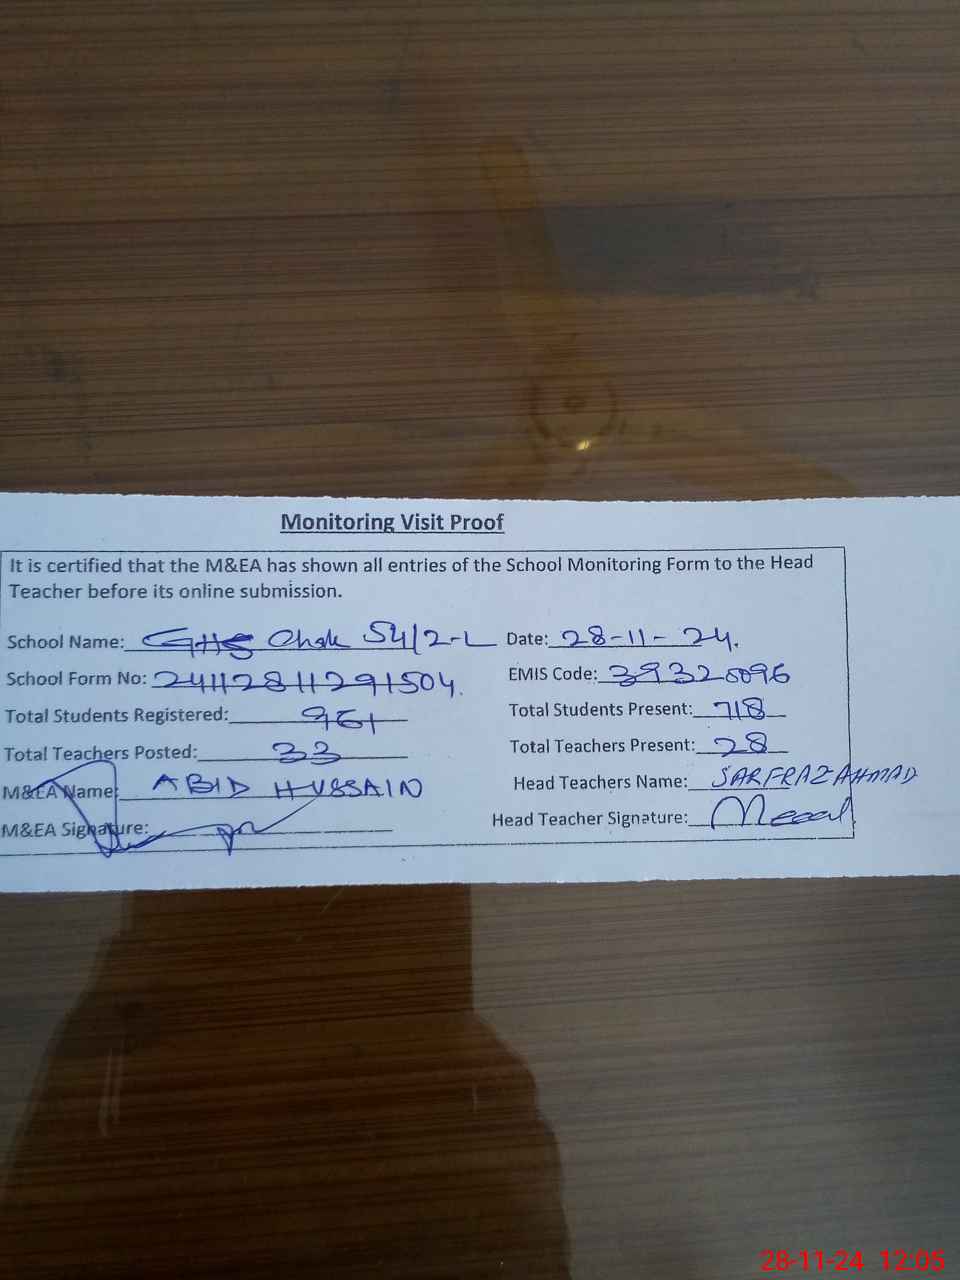 Monitoring Visit Proof
It is certified that the M&EA has shown all entries of the School Monitoring Form to the Head
Teacher before its online submission.
School Name: GHS Chak 54/2-L Date: 28-11-24.
School Form No: 24112811291504. EMIS Code: 39328096
Total Students Registered: 961 Total Students Present: 718
Total Teachers Posted: 33 Total Teachers Present: 28
M&EA Name: ABID HUSSAIN Head Teachers Name: SARFRAZ AHMAD
M&EA Signature: Head Teacher Signature:
28-11-24 12:05